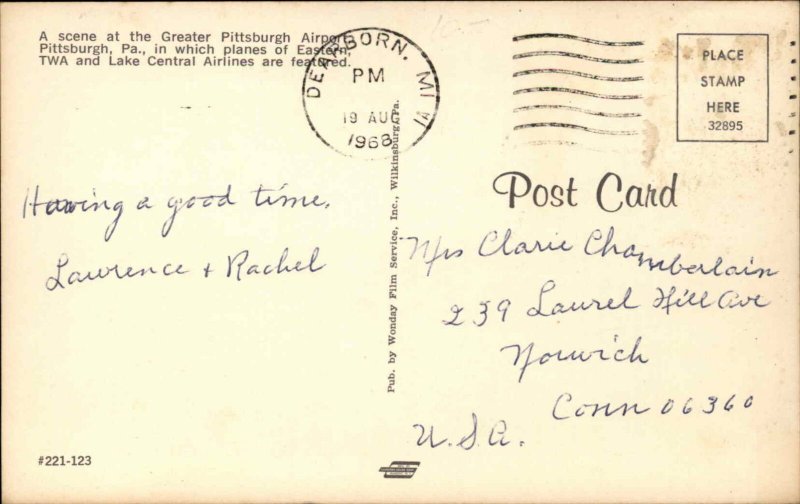 A scene at the Greater Pittsburgh Airport,
Pittsburgh, Pa., in which planes of Eastern,
TWA and Lake Central Airlines are featured.
DEARBORN, MI
PM
19 AUG
1968
PLACE
STAMP
HERE
32895
Post Card
Having a good time.
Lawrence + Rachel
Pub. by Wonday Film Service, Inc., Wilkinsburg, Pa.
Mrs Clarie Chamberlain
239 Laurel Hill Ave
Norwich
Conn 06360
U.S.A.
#221-123